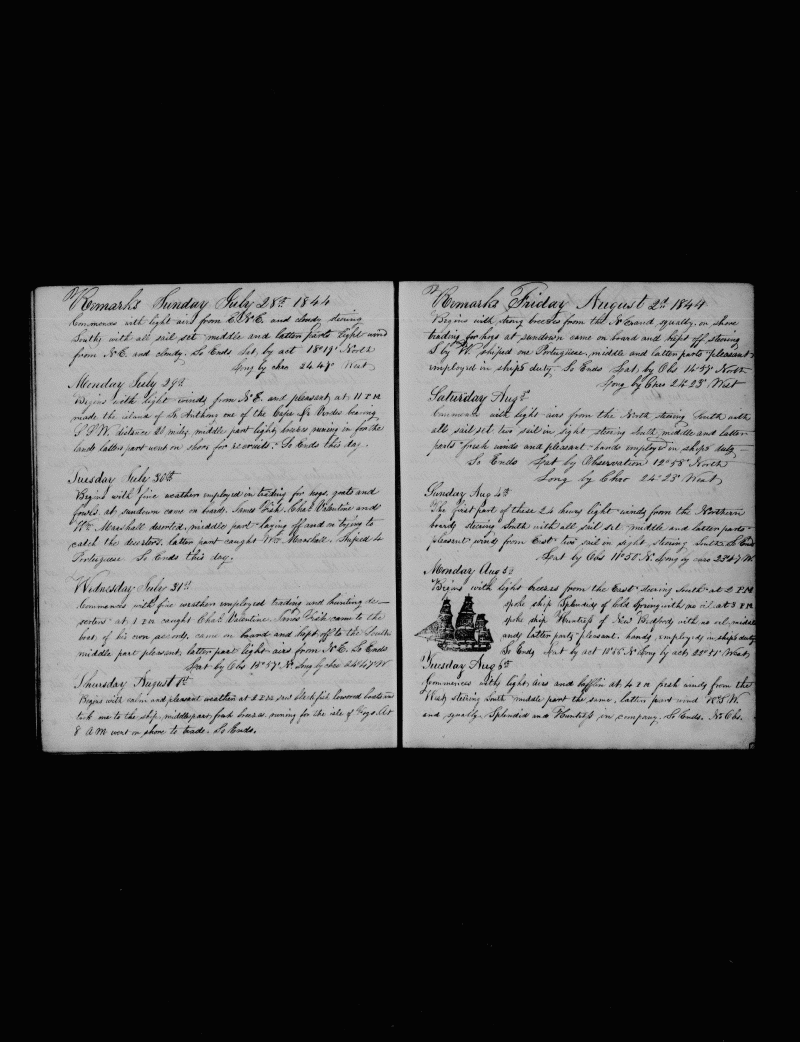 Remarks Sunday July 28th 1844
Commences with light airs from E.N.E. and cloudy stering
South, with all sail set middle and latter parts light wind
from N.E. and cloudy. So Ends Lat. by act 18°19' North
Long by chro 24 48 West
Monday July 29th
Begins with light winds from N.E. and pleasant, at 11 P.M
made the island of St Anthony one of the Cape De Verdes bearing
S.S.W. distance 20 miles, middle part light breezes runing in for the
land. latter part went on shore for recruits. So Ends this day.
Tuesday July 30th
Begins with fine weather employed in trading for hogs, goats and
fowls. at sundown came on board. James Fish, Chas Valentine and
Wm Marshall deserted, middle part laying off and on trying to
catch the deserters. latter part caught Wm Marshall. Shiped 4
Portuguese So Ends this day.
Wednesday July 31st
Commences with fine weather employed trading and hunting de-
serters at 1 P.M caught Chas Valentine. James Fish came to the
boat of his own accord. came on board and kept off to the South
middle part pleasant, latter part light airs from N.E. So Ends
Lat by Obs 14°57' N. Long by chro 24°47' W
Thursday August 1st
Begins with calm and pleasant weather at 2 P.M saw blackfish lowered boats
took one to the ship, middle part fresh breezes, runing for the isle of Fogo. At
8 A M went on shore to trade. So Ends.
Remarks Friday August 2d 1844
Begins with strong breezes from the N.E and squally, on shore
trading for hogs at sundown came on board and kept off stering
S by W. shiped one Portuguese, middle and latter parts pleasant
employed in ship's duty. So Ends Lat by Obs 14°57 North
Long by Chro 24°23' West
Saturday Aug 3d
Commences with light airs from the North stering South with
all sail set two sail in sight stering South middle and latter
parts fresh winds and pleasant hands employed in ships duty
So Ends Lat by Observation 12°58' North
Long by Chro 24°23' West
Sunday Aug 4th
The first part of these 24 hours light winds from the Northern
board, stering South with all sail set middle and latter parts
pleasant wind from East two sail in sight stering South So Ends
Lat by Obs 11°50 N. Long by chro 23°47 W.
Monday Aug 5th
Begins with light breezes from the East stering South at 2 P.M
spoke ship Splendid of Cold Spring with no oil at 3 P.M
spoke ship Huntress of New Bedford with no oil middle
and latter parts pleasant, hands employed in ships duty
So Ends Lat by act 11°16 N. Long by act 22°51' West
Tuesday Aug 6th
Commences with light airs and bafflin at 4 P.M fresh winds from the
West, stering South middle part the same, latter part wind W.S.W.
and squally. Splendid and Huntress in company. So Ends. No Obs.